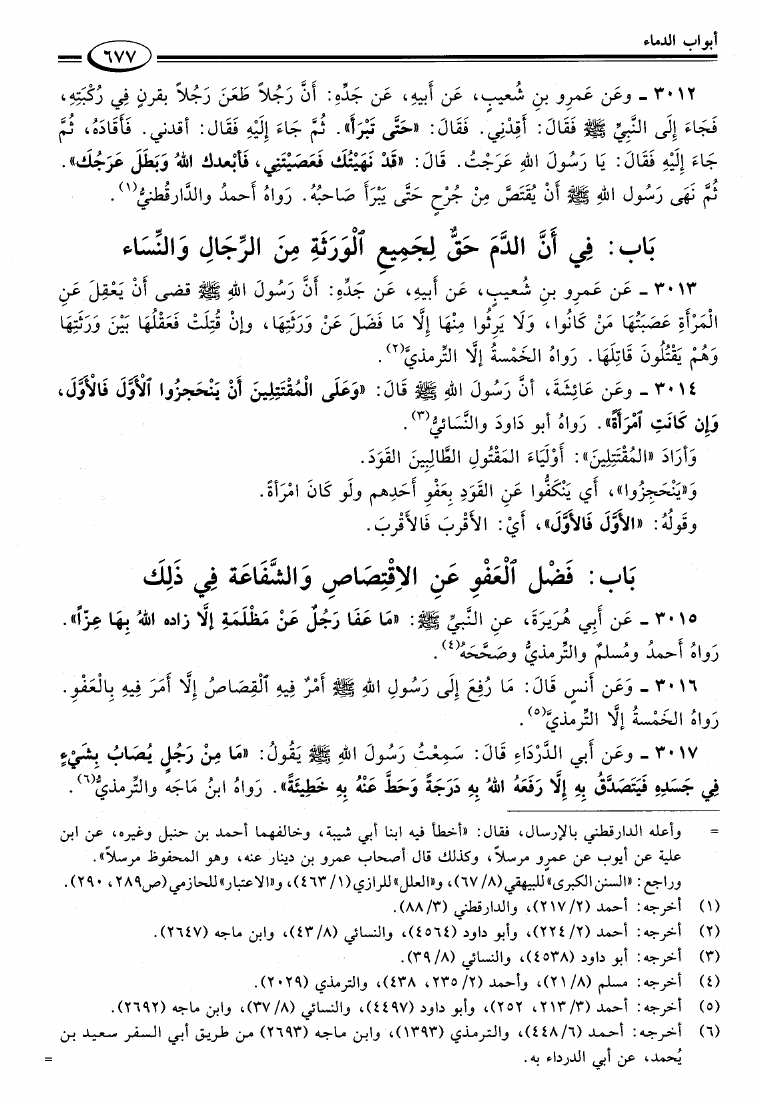 أبواب الدماء
٦٧٧
٣٠١٢ ـ وعَن عَمرِو بنِ شُعيبٍ، عَن أَبيهِ، عَن جَدِّهِ: أَنَّ رَجُلاً طَعَنَ رَجُلاً بقرنٍ فِي رُكْبَتِهِ،
فَجَاءَ إِلَى النَّبِيِّ ﷺ فَقَالَ: أَقِدْنِي. فَقَالَ: «حَتَّى تَبْرَأَ». ثُمَّ جَاءَ إِلَيْهِ فَقَالَ: أقدني. فَأَقَادَهُ، ثُمَّ
جَاءَ إِلَيْهِ فَقَالَ: يَا رَسُولَ اللهِ عَرَجْتُ. قَالَ: «قَدْ نَهَيْتُكَ فَعَصَيْتَنِي، فَأَبْعدك اللهُ وَبَطَلَ عَرَجُكَ».
ثُمَّ نَهَى رَسُول اللهِ ﷺ أَنْ يُقْتَصَّ مِنْ جُرْحٍ حَتَّى يَبْرَأَ صَاحبُهُ. رَوَاهُ أَحمدُ والدَّارقُطنيُّ(١).
بَاب: فِي أَنَّ الدَّمَ حَقٌّ لِجَمِيعِ ٱلْوَرَثَةِ مِنَ الرِّجَالِ وَالنِّسَاء
٣٠١٣ ـ عَن عَمرِو بنِ شُعيبٍ، عَن أَبيهِ، عَن جَدِّهِ: أَنَّ رَسُولَ اللهِ ﷺ قضى أَنْ يَعْقِلَ عَنِ
الْمَرْأَةِ عَصَبَتُهَا مَنْ كَانُوا، وَلَا يَرِثُوا مِنْهَا إِلَّا مَا فَضَلَ عَنْ وَرَثَتِهَا، وإنْ قُتِلَتْ فَعَقْلُهَا بَيْنَ وَرَثَتِهَا
وَهُمْ يَقْتُلُونَ قَاتِلَهَا. رَوَاهُ الخَمْسةُ إلَّا التِّرمذيَّ(٢).
٣٠١٤ ـ وعَن عَائِشَةَ، أنَّ رَسُولَ اللهِ ﷺ قَالَ: «وَعَلَى الْمُقْتَتِلِينَ أَنْ يَنْحَجِزُوا ٱلْأَوَّلَ فَالأَوَّلَ،
وَإِن كَانَتِ ٱمْرَأَةً». رَوَاهُ أبو دَاودَ والنَّسائيُّ(٣).
وَأَرَادَ «المُقْتَتِلِينَ»: أَوْلِيَاءَ المَقْتُولِ الطَّالِبِينَ القَوَدَ.
وَ«يَنْحَجِزُوا»، أَي يَنْكَفُّوا عَنِ القَوَدِ بِعَفْوِ أَحَدِهم ولَو كَانَ امْرَأةً.
وقَولُهُ: «الأَوَّلَ فَالأَوَّلَ»، أَيْ: الأَقْرَبَ فَالأَقْرَبَ.
بَاب: فَضْل ٱلْعَفْوِ عَنِ الاِقْتِصَاصِ وَالشَّفَاعَة فِي ذَلِكَ
٣٠١٥ ـ عَن أَبِي هُرَيرَةَ، عنِ النَّبيِّ ﷺ: «مَا عَفَا رَجُلٌ عَنْ مَظْلَمَةٍ إلَّا زاده اللهُ بِهَا عِزّاً».
رَوَاهُ أَحمدُ ومُسلمٌ والتِّرمذيُّ وصحَّحَهُ(٤).
٣٠١٦ ـ وَعَن أَنسٍ قَالَ: مَا رُفِعَ إِلَى رَسُولِ اللهِ ﷺ أَمْرٌ فِيهِ ٱلْقِصَاصُ إِلَّا أَمَرَ فِيهِ بِالْعَفْوِ.
رَوَاهُ الخَمْسةُ إلَّا التِّرمذيَّ(٥).
٣٠١٧ ـ وعَن أَبي الدَّرْدَاءِ قَالَ: سَمِعْتُ رَسُولَ اللهِ ﷺ يَقُولُ: «مَا مِنْ رَجُلٍ يُصَابُ بِشَيْءٍ
فِي جَسَدِهِ فَيَتَصَدَّقُ بِهِ إِلَّا رَفَعَهُ اللهُ بِهِ دَرَجَةً وَحَطَّ عَنْهُ بِهِ خَطِيئَةً». رَوَاهُ ابنُ مَاجَه والتِّرمذيُّ(٦).
= وأعله الدارقطني بالإرسال، فقال: «أخطأ فيه ابنا أبي شيبة، وخالفهما أحمد بن حنبل وغيره، عن ابن
علية عن أيوب عن عمرو مرسلاً، وكذلك قال أصحاب عمرو بن دينار عنه، وهو المحفوظ مرسلاً».
وراجع: «السنن الكبرى» للبيهقي (٨/ ٦٧)، و«العلل» للرازي (١/ ٤٦٣)، و«الاعتبار» للحازمي (ص٢٨٩، ٢٩٠).
(١) أخرجه: أحمد (٢/ ٢١٧)، والدارقطني (٣/ ٨٨).
(٢) أخرجه: أحمد (٢/ ٢٢٤)، وأبو داود (٤٥٦٤)، والنسائي (٨/ ٤٣)، وابن ماجه (٢٦٤٧).
(٣) أخرجه: أبو داود (٤٥٣٨)، والنسائي (٨/ ٣٩).
(٤) أخرجه: مسلم (٨/ ٢١)، وأحمد (٢/ ٢٣٥، ٤٣٨)، والترمذي (٢٠٢٩).
(٥) أخرجه: أحمد (٣/ ٢١٣، ٢٥٢)، وأبو داود (٤٤٩٧)، والنسائي (٨/ ٣٧)، وابن ماجه (٢٦٩٢).
(٦) أخرجه: أحمد (٦/ ٤٤٨)، والترمذي (١٣٩٣)، وابن ماجه (٢٦٩٣) من طريق أبي السفر سعيد بن
يُحمد، عن أبي الدرداء به. =